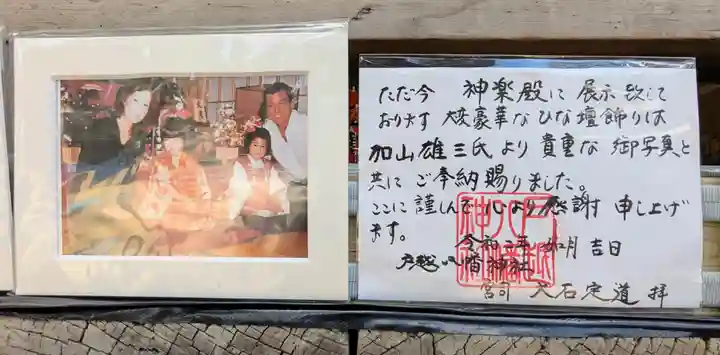 ただ今 神楽殿に 展示致して
おります 大変豪華なひな壇飾りは
加山雄三氏より貴重な御写真と
共にご奉納賜りました。
ここに謹んで心より感謝申し上げ
ます。
令和二年 如月吉日
戸越八幡神社
宮司 大石定道 拝